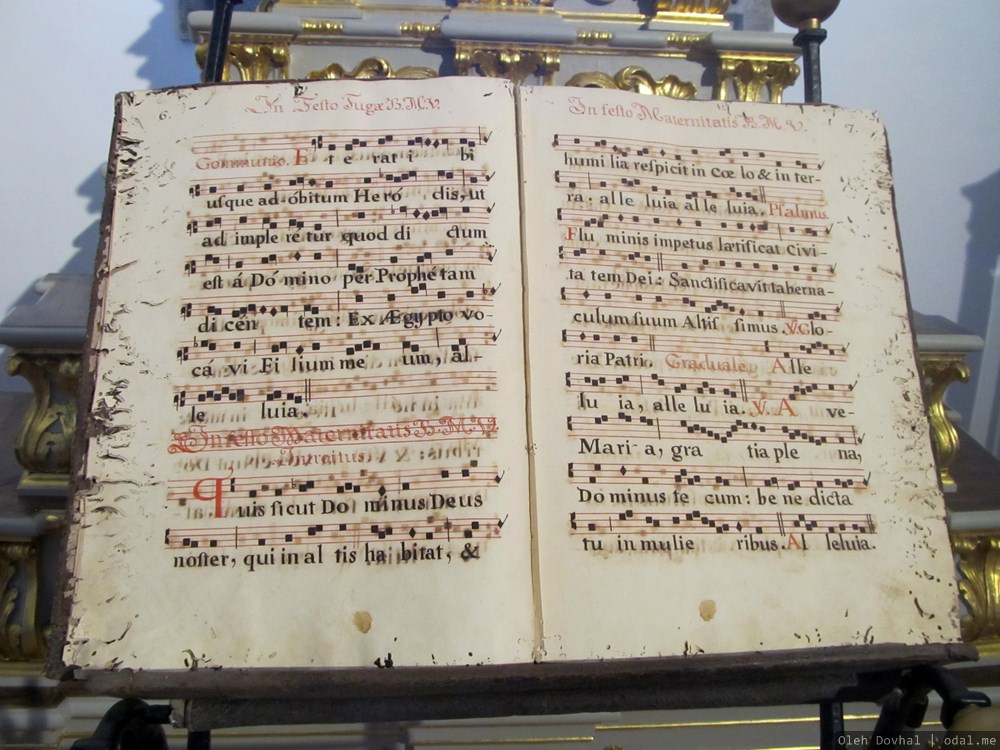 6.
In Festo Fugæ B.M.V.
Communio. Et erat i bi
usque ad óbitum Heró dis, ut
ad imple ré tur quod di ctum
est á Dó mino per Prophe tam
di cén tem: Ex Ægypto vo-
cá vi Fi lium me um, al-
le luia.
In festo Maternitatis B.M.V.
Introitus.
Quis sicut Do minus Deus
noster, qui in al tis ha bitat, &
7.
In festo Maternitatis B.M.V.
humi lia respicit in Cœ lo & in ter-
ra. al le luia al le luia. Psalmus.
Flu minis impetus lætificat Civi-
ta tem Dei: Sanctificavit taberna-
culum suum Altis simus. V. Glo-
ria Patri. Graduale. Alle
lu ia, alle lu ia. V. A ve-
Mari a, gra tia ple na,
Do minus te cum: be ne dicta
tu in mulie ribus. Al leluia.
Oleh Dovhal | odal.me